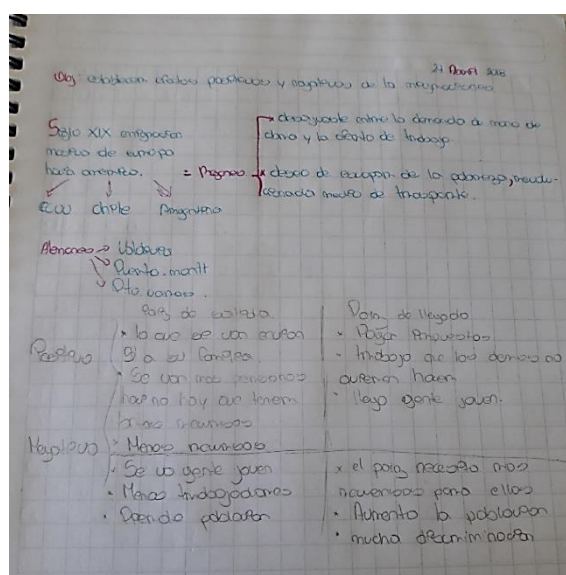 21 Abril 2018
Obj: establecen efectos positivos y negativos de la
Siglo XIX emigración
masiva de europa
hacia america.
EEUU chile Argentina
= Progreso
desajuste entre la demanda de mano de
obra y la oferta de trabajo.
deseo de escapar de la pobreza,
medio de transporte.
Alemanes → Valdivia
Puerto. montt
Pto. varas.
País de salida
País de llegada
Positivo
• lo que se van envian
$ a su familia.
• Se van mas personas
no hay que tener
recursos
• Menos recursos
• Pagar Impuestos
• trabajo que los demas no
quieren hacer
• llega gente joven.
Negativo
• Se va gente joven
• Menos trabajadores
• Pierde población
• el pais necesita mas
recursos para ellos
• Aumento la población
• mucha discriminación